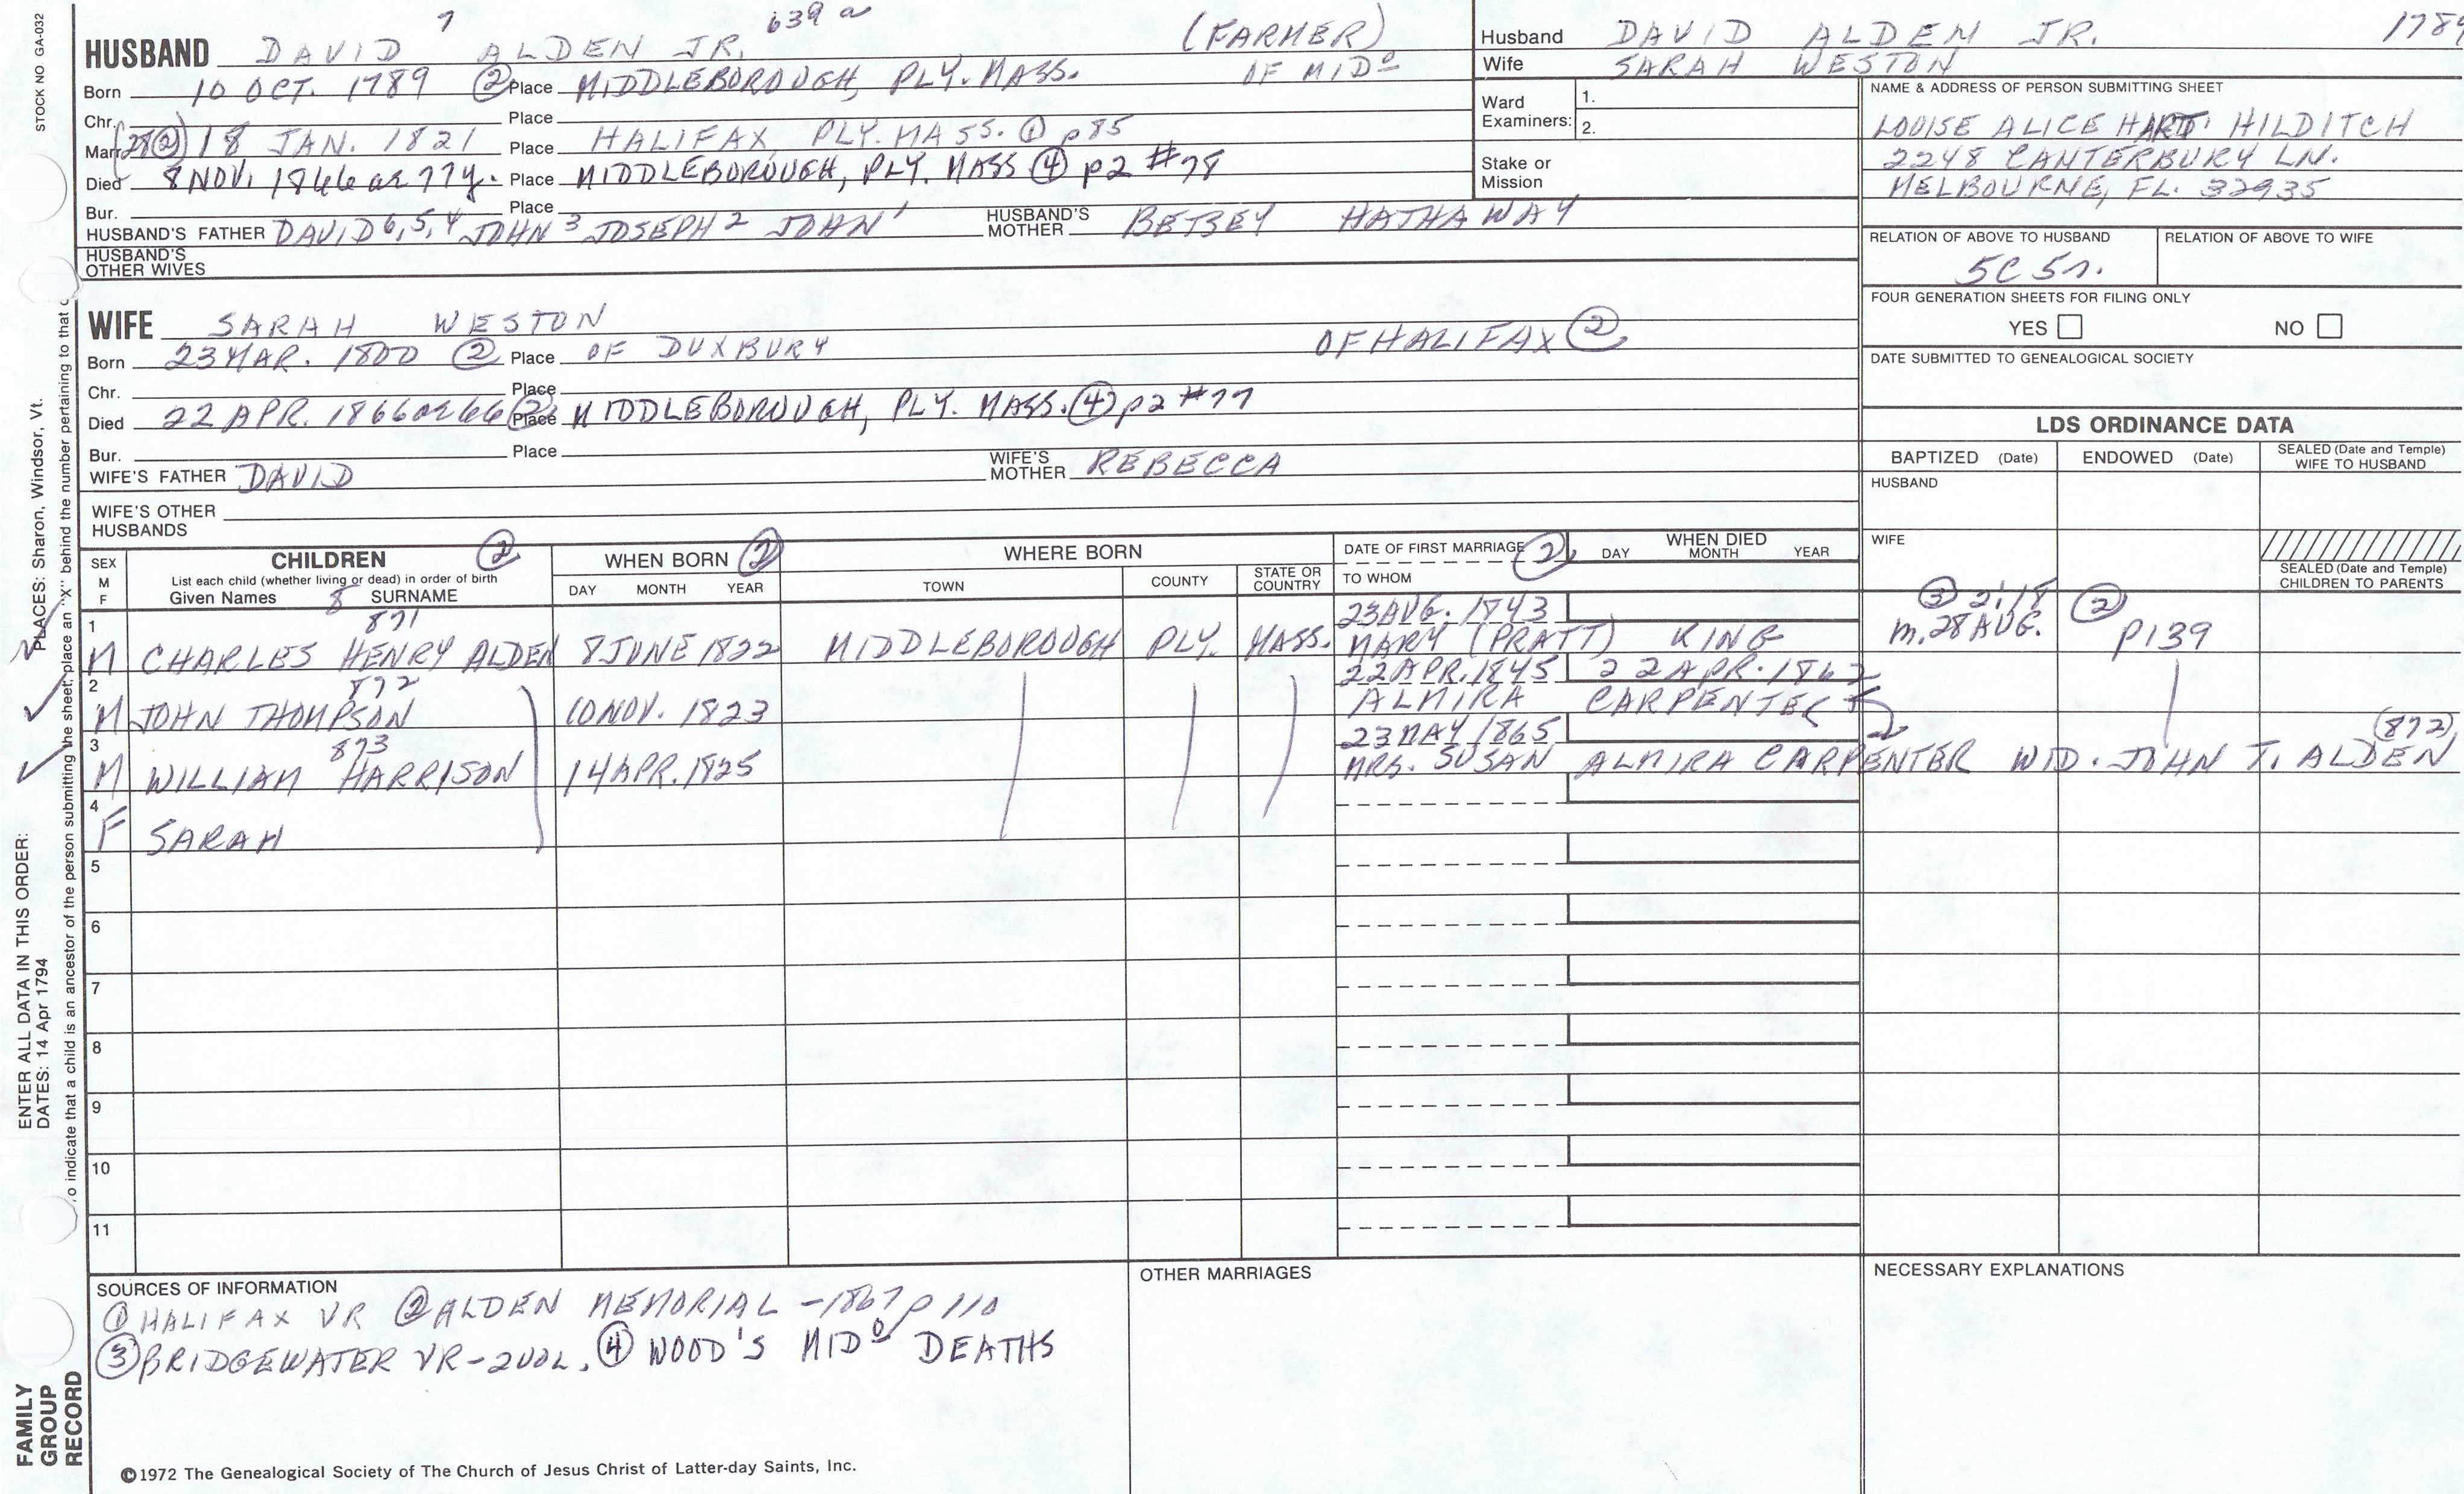 STOCK NO. GA-032
7 639 a
HUSBAND DAVID ALDEN JR. (FARMER)
Born 10 OCT. 1789 ② Place MIDDLEBOROUGH, PLY. MASS. OF MIDº
Chr. Place
Marr. (28②) 18 JAN. 1821 Place HALIFAX, PLY. MASS. ① p85
Died 8 NOV. 1866 ae 77y. Place MIDDLEBOROUGH, PLY. MASS ④ p2 #78
Bur. Place
HUSBAND'S FATHER DAVID 6,5,4 JOHN 3 JOSEPH 2 JOHN 1 HUSBAND'S MOTHER BETSEY HATHAWAY
HUSBAND'S OTHER WIVES
WIFE SARAH WESTON
Born 23 MAR. 1800 ② Place OF DUXBURY OF HALIFAX ②
Chr. Place
Died 22 APR. 1866 ae 66 ② Place MIDDLEBOROUGH, PLY. MASS. ④ p2 #77
Bur. Place
WIFE'S FATHER DAVID WIFE'S MOTHER REBECCA
WIFE'S OTHER HUSBANDS
Husband DAVID ALDEN JR. 1789
Wife SARAH WESTON
Ward Examiners: 1.
2.
Stake or Mission
NAME & ADDRESS OF PERSON SUBMITTING SHEET
LOUISE ALICE HART HILDITCH
2248 CANTERBURY LN.
MELBOURNE, FL. 32935
RELATION OF ABOVE TO HUSBAND RELATION OF ABOVE TO WIFE
5C 5r.
FOUR GENERATION SHEETS FOR FILING ONLY
YES NO
DATE SUBMITTED TO GENEALOGICAL SOCIETY
LDS ORDINANCE DATA
BAPTIZED (Date) ENDOWED (Date) SEALED (Date and Temple) WIFE TO HUSBAND
HUSBAND
WIFE
SEALED (Date and Temple) CHILDREN TO PARENTS
SEX M F CHILDREN ② WHEN BORN ② WHERE BORN DATE OF FIRST MARRIAGE ② WHEN DIED
List each child (whether living or dead) in order of birth
Given Names 8 SURNAME DAY MONTH YEAR TOWN COUNTY STATE OR COUNTRY TO WHOM DAY MONTH YEAR
1 871 23 AUG. 1843 ③ 2:18 ②
M CHARLES HENRY ALDEN 8 JUNE 1822 MIDDLEBOROUGH PLY. MASS. MARY (PRATT) KING m. 28 AUG. p139
2 872 22 APR. 1845 22 APR. 1862
M JOHN THOMPSON 10 NOV. 1823 ALMIRA CARPENTER
3 873 23 MAY 1865 (872)
M WILLIAM HARRISON 14 APR. 1825 MRS. SUSAN ALMIRA CARPENTER WID. JOHN T. ALDEN
4
F SARAH
5
6
7
8
9
10
11
SOURCES OF INFORMATION
① HALIFAX VR ② ALDEN MEMORIAL -1867 p 110
③ BRIDGEWATER VR-2VOL. ④ WOOD'S MIDº DEATHS
OTHER MARRIAGES
NECESSARY EXPLANATIONS
©1972 The Genealogical Society of The Church of Jesus Christ of Latter-day Saints, Inc.
FAMILY GROUP RECORD
ENTER ALL DATA IN THIS ORDER:
DATES: 14 Apr 1794
PLACES: Sharon, Windsor, Vt.
o indicate that a child is an ancestor of the person submitting the sheet, place an "x" behind the number pertaining to that c